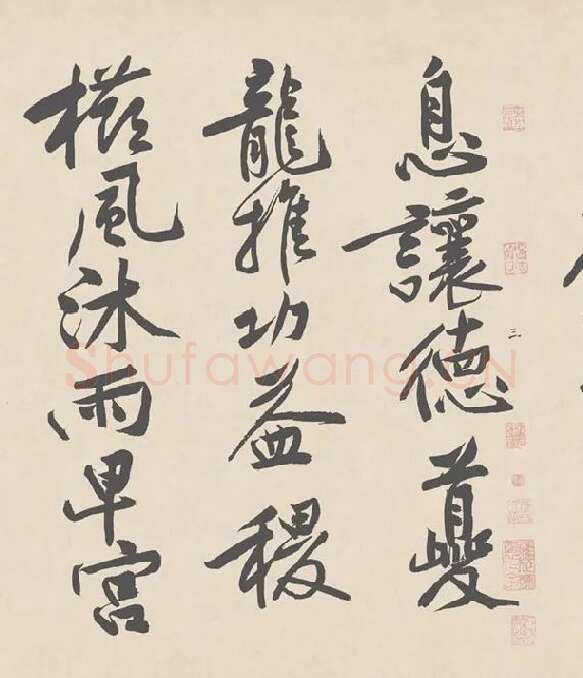 息讓德夔
龍推功益稷
櫛風沐雨卑宮
三
Shufawang.CN